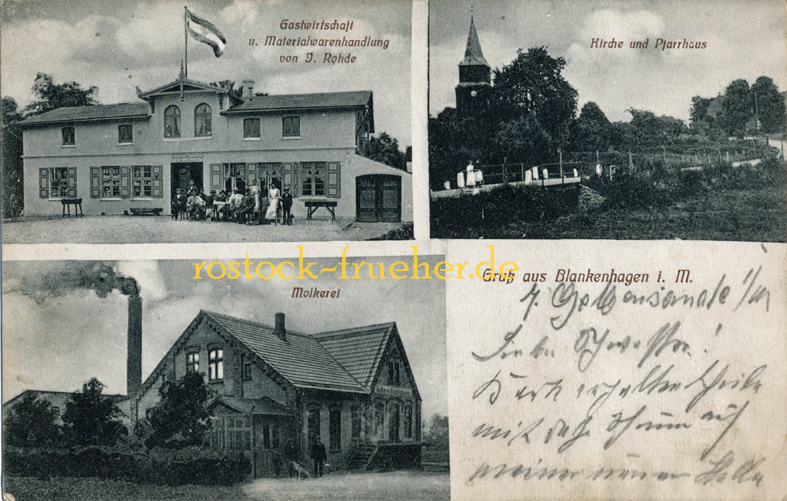 Gastwirtschaft
u. Materialwarenhandlung
von J. Rohde
Kirche und Pfarrhaus
rostock-frueher.de
Gruß aus Blankenhagen i. M.
Molkerei
Liebe Schwester!
Karte erhalten, theile
mit daß ich schon auf
meiner neuen Stelle